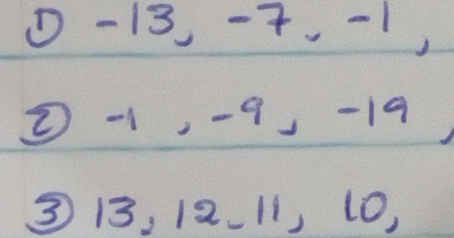 ① -13, -7, -1,
② -1, -9, -19,
③ 13, 12, 11, 10,